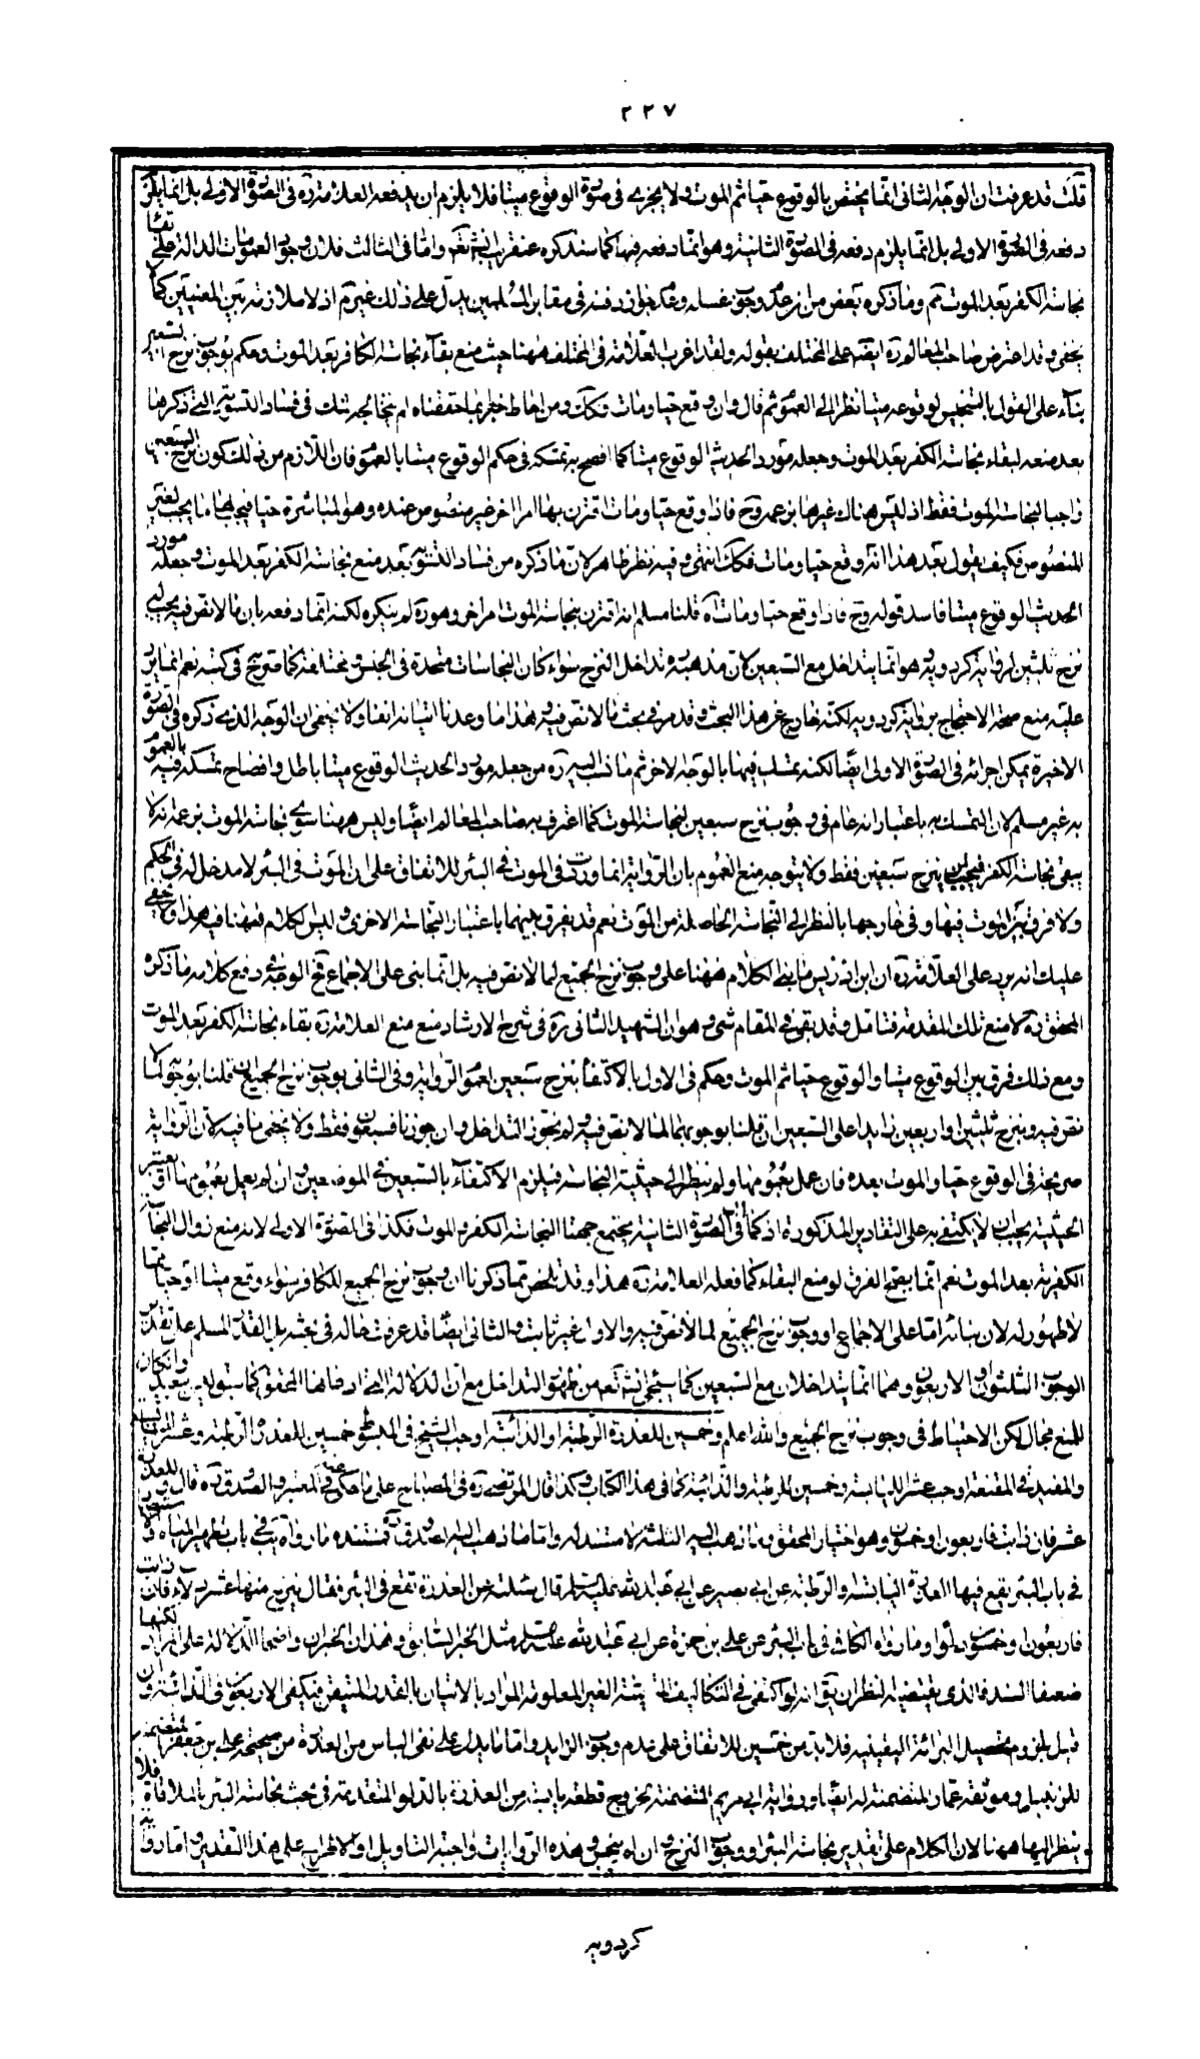 ٢٢٧
قلت قد عرفت ان الوجه الثانى انما يختص بالوقوع حيا ثم الموت ولا يجزى فى صورة الوقوع ميتا فلا يلزم ان يدفعه العلامة ره فى الصورة الاولى بل انما يلزم
دفعه فى الصورة الاولى بل انما يلزم دفعه فى الصورة الثانية وهو انما دفعه فيها كما سنذكره عنقريب انش تعه واما فى الثالث فلان وجود العمومات الدالة على
نجاسة الكفر بعد الموت ثم وما ذكره بعض من ان عدم وجوب غسله وعدم جواز دفنه فى مقابر المسلمين يدل على ذلك غير تم اذ لا ملازمة بين المعنيين كما لا
يخفى وقد اعترض صاحب المعالم ره ايضه على المختلف بقوله ولقد اغرب العلامة فى المختلف ههنا حيث منع بقاء نجاسة الكافر بعد الموت وحكم بوجوب نزح السبعين
بناء على القول بالتنجيس لوقوعه ميتا نظرا الى العموم ثم قال وان وقع حيا ومات فكك ومن احاط خبرا بما حققناه لم يتخالجه شك فى فساد التسوية التى ذكرها
بعد منعه لبقاء نجاسة الكفر بعد الموت وجعله مورد الحديث الوقوع ميتا كما افصح به تمسكه فى حكم الوقوع ميتا بالعموم فان اللازم من ذلك كون نزح السبعين
واجبا لنجاسة الموت فقط اذ ليس هناك غيرها بزعمه وح فاذا وقع حيا ومات اقترن بها امر اخر غير منصوص عنده وهو المباشرة حيا فيجب لها ما يجب لغير
المنصوص فكيف يقول بعد هذا انه وقع حيا ومات فكك انتهى وفيه نظر ظاهر لان ما ذكره من فساد التسوية بعد منع نجاسة الكفر بعد الموت وجعله مورد
الحديث الوقوع ميتا فاسد قوله وح فاذا وقع حيا ومات اه قلنا مسلم انه اقترن بنجاسة الموت امر اخر وهو ره لم ينكره لكنه انما دفعه بان ما لا نص فيه يجب له
نزح ثلثين لرواية كردويه وهو انما يتداخل مع السبعين لان مذهبه ره تداخل النزح سواء كان النجاسات متحدة فى الجنس او مختلفة كما صرح فى كتبه نعم انما يرد
عليه منع صحة الاحتجاج برواية كردويه لكنه خارج عن هذا البحث وقد مر فى بحث ما لا نص فيه وهذا ما وعدنا اتيانه انفا ولا يخفى ان الوجه الذى ذكره فى الصورة
الاخيرة يمكن اجرائه فى الصورة الاولى ايضا لكنه تمسك فيها بالوجه الاخر ثم ما نسب اليه ره من جعله مورد الحديث الوقوع ميتا باطل وافصاح تمسكه فيه بالعموم
به غير مسلم لان التمسك به باعتبار انه عام فى وجوب نزح سبعين لنجاسة الموت كما اعترف به صاحب المعالم ايضا وليس ههنا سوى نجاسة الموت بزعمه انه لا
يبقى نجاسة الكفر فيجب ان ينزح سبعين فقط ولا يتوجه منع العموم بان الرواية انما وردت فى الموت فى البئر للاتفاق على ان الموت فى البئر لا مدخل له فى الحكم
ولا فرق بين الموت فيها وفى خارجها بالنظر الى النجاسة الحاصلة من الموت نعم قد يفرق بينهما باعتبار النجاسة الاخرى وليس الكلام ههنا فيه هذا ولا يخفى
عليك انه يرد على العلامة ره ان ابن ادريس ما بنى الكلام ههنا على وجوب نزح الجميع لما لا نص فيه بل انما بنى على الاجماع فح الوجه فى دفع كلامه ما ذكره
المحقق ره لا منع تلك المقدمة فتامل وقد بقى فى المقام شىء وهو ان الشهيد الثانى ره فى شرح الارشاد منع منع العلامة ره بقاء نجاسة الكفر بعد الموت
ومع ذلك فرق بين الوقوع ميتا والوقوع حيا ثم الموت وحكم فى الاول بالاكتفاء بنزح سبعين لعموم الرواية وفى الثانى بوجوب نزح الجميع ان قلنا بوجوبه لما لا
نص فيه وبنزح ثلثين او اربعين زايدا على السبعين ان قلنا بوجوبهما لما لا نص فيه ولم نجوز التداخل وان جوزنا فسبعون فقط ولا يخفى ما فيه لان الرواية
صريحة فى الوقوع حيا والموت بعده فان عمل بعمومها ولم ينظر الى حيثية النجاسة فيلزم الاكتفاء بالسبعين فى الموضعين وان لم يعمل بعمومها او يعتبر
الحيثية يجب ان لا يكتفى به على التقادير المذكورة اذ كما فى الصورة الثانية يجتمع جهتا النجاسة الكفر والموت فكذا فى الصورة الاولى لانه منع زوال النجاسة
الكفرية بعد الموت نعم انما يصح الفرق لو منع البقاء كما فعله العلامة ره هذا وقد تلخص مما ذكرنا ان وجوب نزح الجميع للكافر سواء وقع ميتا او حيا مما
لا ظهور له لان بنائه اما على الاجماع او وجوب نزح الجميع لما لا نص فيه والاول غير ثابت والثانى ايضا قد عرفت حاله فى بحثه بل القدر المسلم على تقدير
الوجوب الثلثون او الاربعون وهما انما يتداخلان مع السبعين كما سيجىء انش تعه من ظهور التداخل مع ان الدلالة التى ادعاها المحقق كما سبق ليس ببعيد وان كان
للمنع مجال لكن الاحتياط فى وجوب نزح الجميع والله اعلم وخمسين للعذرة الرطبة او الذائبة اوجب الشيخ فى المبسوط خمسين للعذرة الرطبة وعشر لليابسة
والمفيد فى المقنعة اوجب عشر لليابسة وخمسين للرطبة والذائبة كما فى هذا الكتاب وكذا قال المرتضى ره فى المصباح على ما حكى عنه فى المعتبر والصدوق ره قال للعذرة
عشر فان ذابت فاربعون او خمسون وهو اختيار المحقق وما ذهب اليه الثلثة لا مستند له واما ما ذهب اليه الصدوق ره فمستنده ما رواه يب فى باب تطهير المياه
فى باب البئر يقع فيها العذرة اليابسة والرطبة عن ابى بصير عن ابى عبد الله عليه السلام قال سئلته عن العذرة تقع فى البئر فقال ينزح منها عشر دلاء فان ذابت
فاربعون او خمسون دلوا وما رواه الكافى فى باب البئر عن على بن حمزة عن ابى عبد الله عليه السلام مثل الخبر السابق وهذان الخبران واضحا الدلالة على المراد لكنهما
ضعيفا السند فالذى يقتضيه النظر ان يق انه لو اكتفى فى التكاليف اليقينية الغير المعلومة المراد بالاتيان بالقدر المتيقن فيكفى الاربعون فى الذائبة وان
قيل بلزوم تحصيل البرائة اليقينية فلا بد من خمسين للاتفاق على عدم وجوب الزايد واما ما يدل على نفى الباس من العذرة من صحيحة على بن جعفر المتضمنة
للزنبيل وموثقة عمار المتضمنة له ايضا ورواية ابى مريم المتضمنة بخروج قطعة يابسة من العذرة بالدلو المتقدمة فى بحث نجاسة البئر بالملاقاة فلا
ينظر اليها ههنا لان الكلام على تقدير نجاسة البئر او وجوب النزح وان لم ينجس وهذه الروايات واجبة التاويل او الاطراح على هذا التقدير واما رواية
كردويه